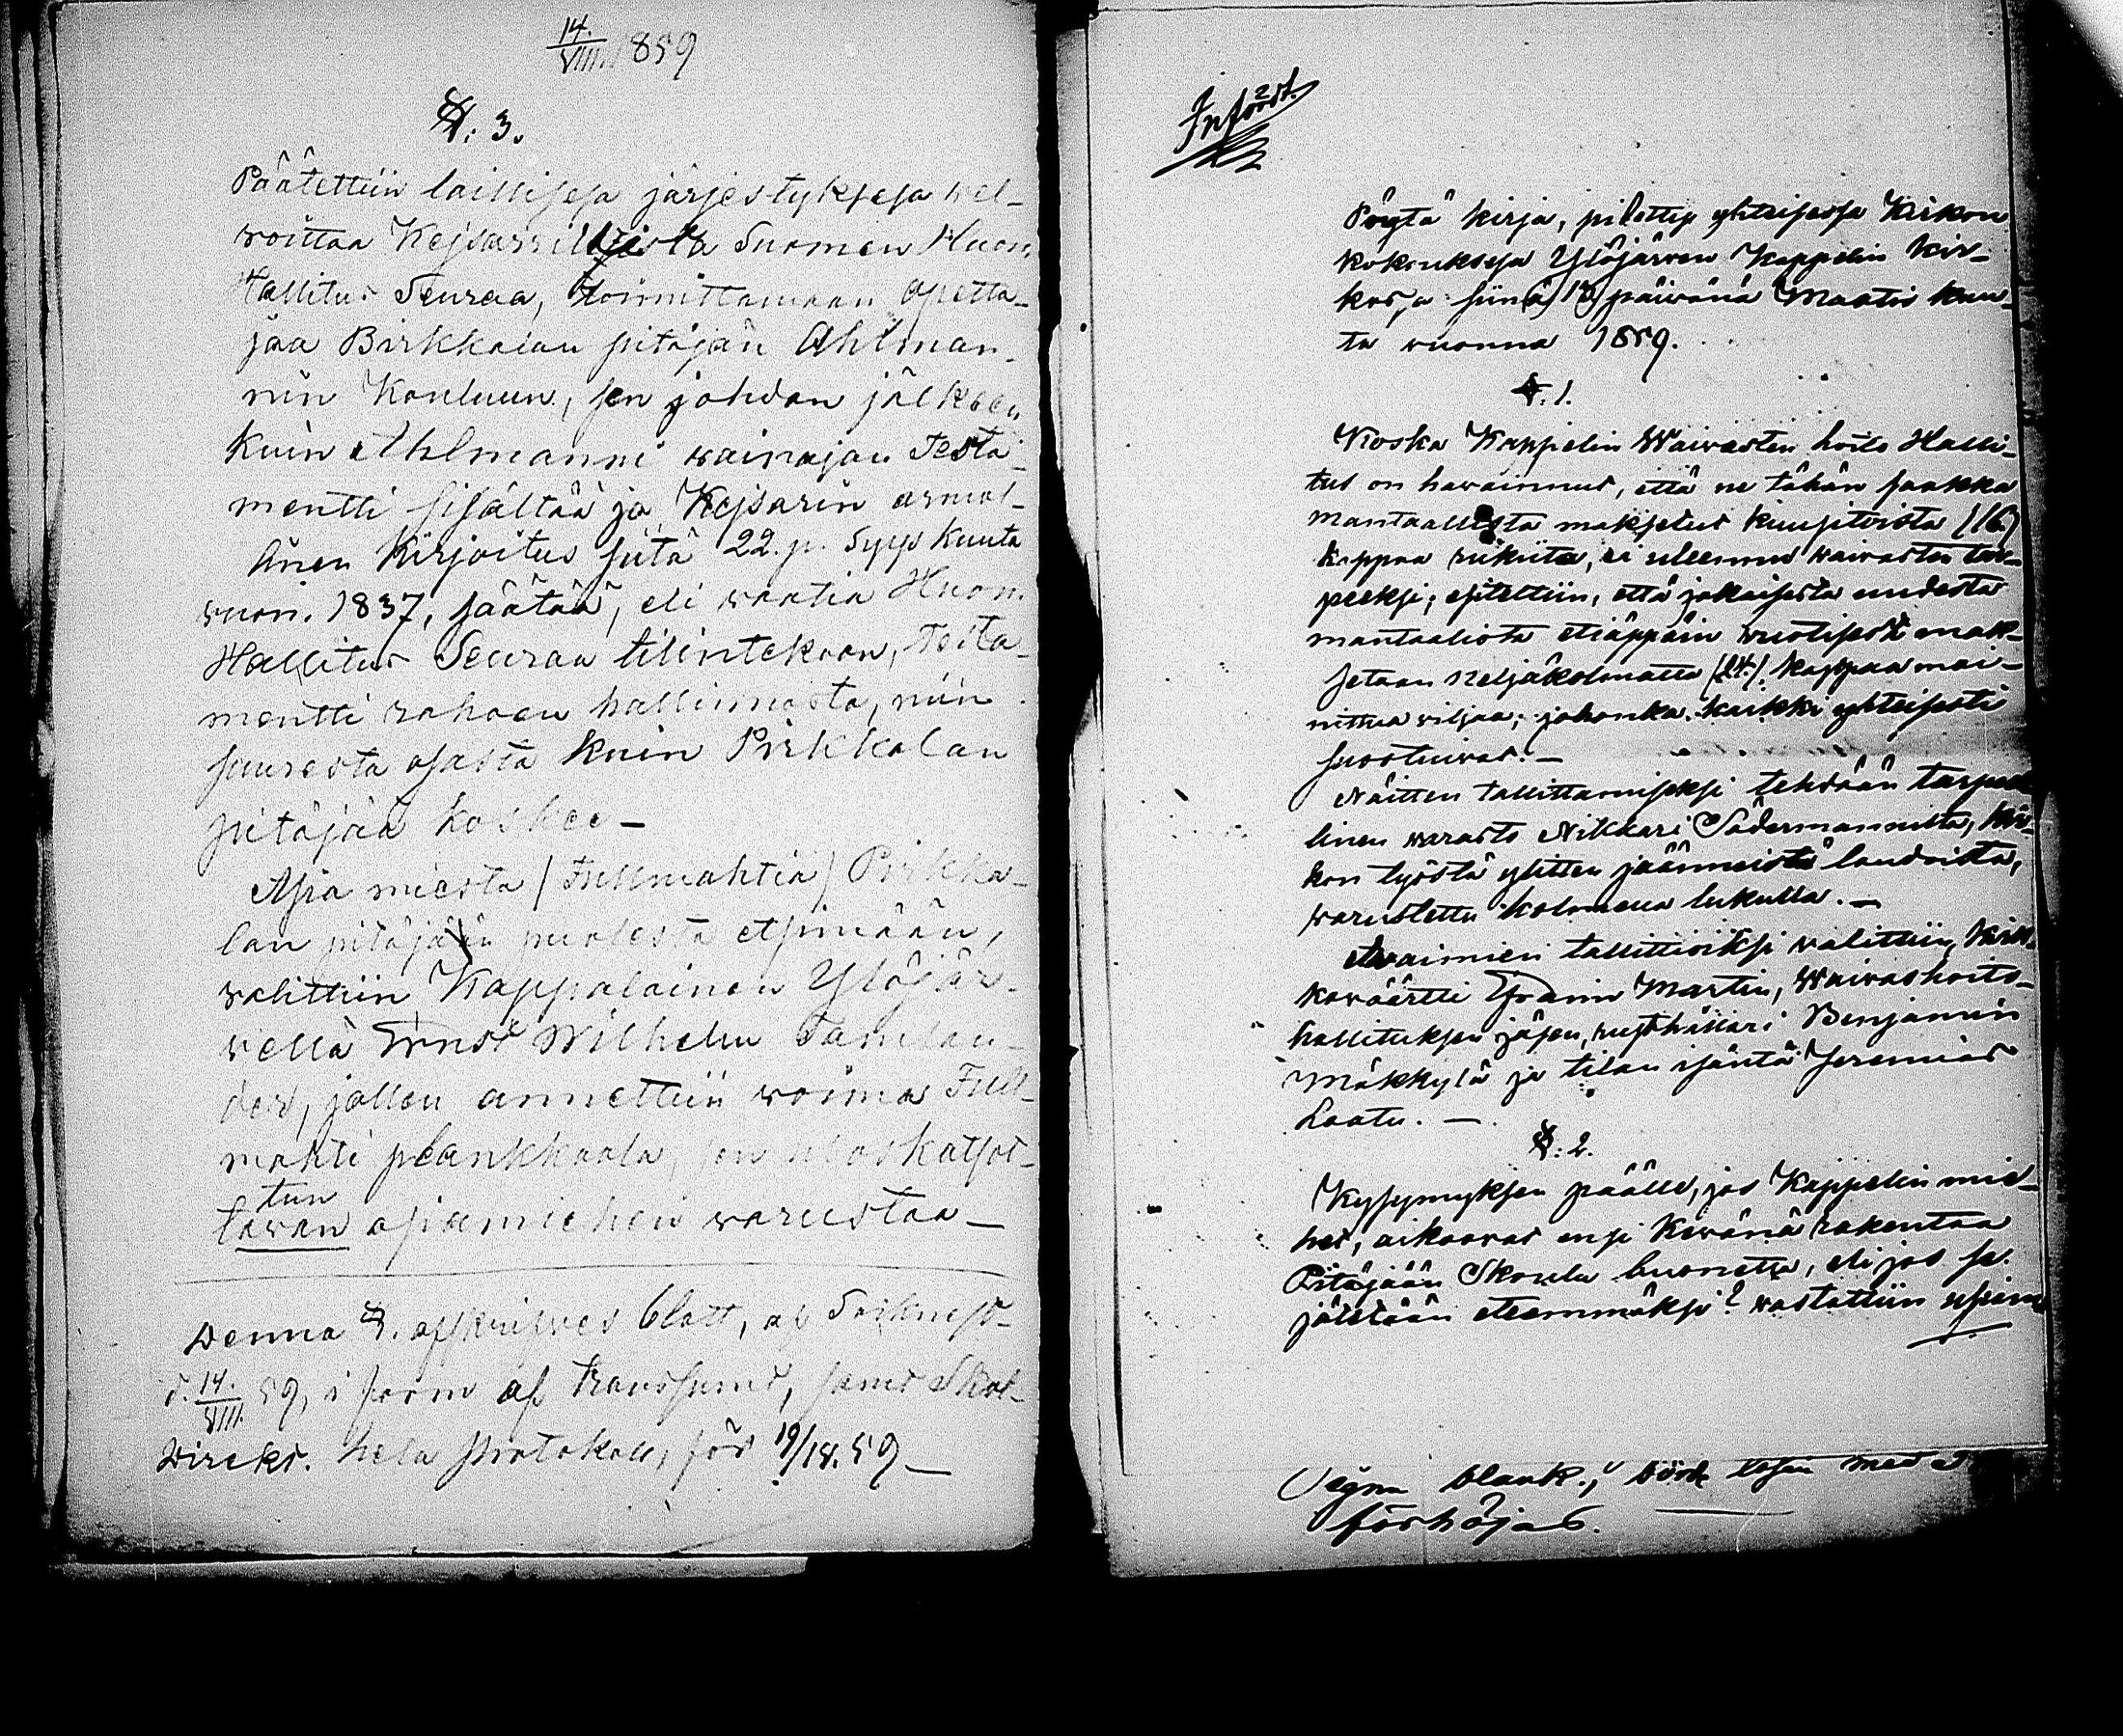 14./VIII. 1859
§: 3.
Päätettiin laillisesa järjestyksesa wel-
woittaa Kejsarillista Suomen Huon.
Hallitus Seuraa, toimittamaan opetta-
jaa Birkkalan pitäjän Ahlman-
nin Kouluun, sen johdon jälkeen
kuin Ahlmanni wainajan Testa-
mentti sisältää ja Kejsarin armol-
linen Kirjoitus siitä 22. p. Syys Kuuta
wuon. 1837, säätää, eli waatia Huon.
Hallitus Seuraa tilintekoon, Testa-
mentti rahaen hallinnosta, niin
suuresta osasta kuin Pirkkalan
pitäjää koskee —
Asia miestä (Fullmahtia) Pirkka-
lan pitäjän puolesta etsimään,
walittiin Kappalainen Ylöjär-
wellä Ernst Wilhelm Tamlan-
der, jollen annettiin woima Full-
mahti plankkaala, sen uloskatsot-
tun
tawan asiamiehen warustaa —
Denna §. afskrifves blott, af Sockenst.
d. 14./VIII. 59, i form af transsumt, samt Skol-
Direkt. hela Protokoll, för 19/18. 59 —
Infördt.
2
Pöytä kirja, pidetty yhteisessa Kirkon
kokouksesa Ylöjärwen Kappelin Kir-
kosa siinä 13 päiwänä Maalis kuu-
ta wuonna 1859.
§. 1.
Koska Kappelin Waiwasten hoito Halli-
tus on hawainnut, että ne tähän saakka
mantaalista maksetut kuusitoista (16)
kappaa rukiita, ei uleennut waiwasten tar-
peeksi; esiteltiin, että jokaisesta uudesta
mantaalista etiäppäin wuotisesti mak-
setaan neljäkolmatta (24) kappaa mai-
nittua wiljaa; johonka kaikki yhteisesti
suostuiwat. —
Näitten tallittamiseksi tehdään tarpeel-
linen warasto Nikkari Södermannilta, kir-
kon työstä ylitten jäänneistä laudoista,
warustettu kolmella lukulla. —
Awaimien tallittioiksi walittiin, Kirk-
kowäärtti Efraim Martin, Waiwashoito-
hallituksen jäsen, rusthållari Benjamin
Mäkkylä ja tilan isäntä Jeremias
Laatu. —
§: 2.
Kysymyksen päälle, jos Kappelin mie-
het, aikoowat ensi Kewänä rakentaa
Pitäjään Skoulu huonetta, eli jos se
jätetään eteenmäksi? wastattiin usiam-
blank., med
förhöjas.